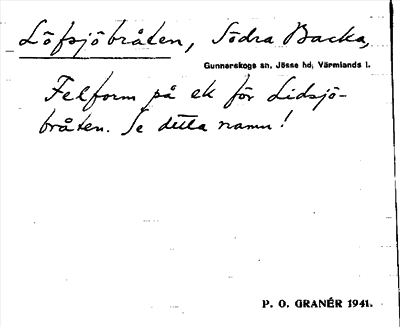 Löfsjöbråten, Södra Backa,
Gunnarskogs sn, Jösse hd, Värmlands l.
Felform på ek för Lidsjö-
bråten. Se detta namn!
P. O. GRANÉR 1941.